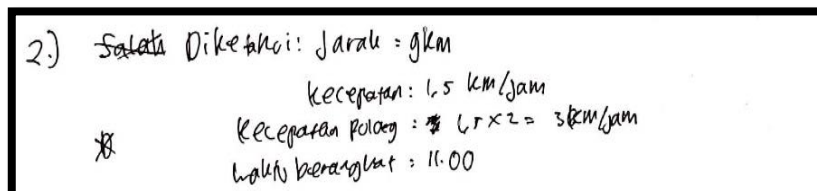 2.) Salah Diketahui: Jarak = 9km
kecepatan: 1,5 km/jam
kecepatan pulang : 1,5 x 2 = 3 km/jam
waktu berangkat : 11.00